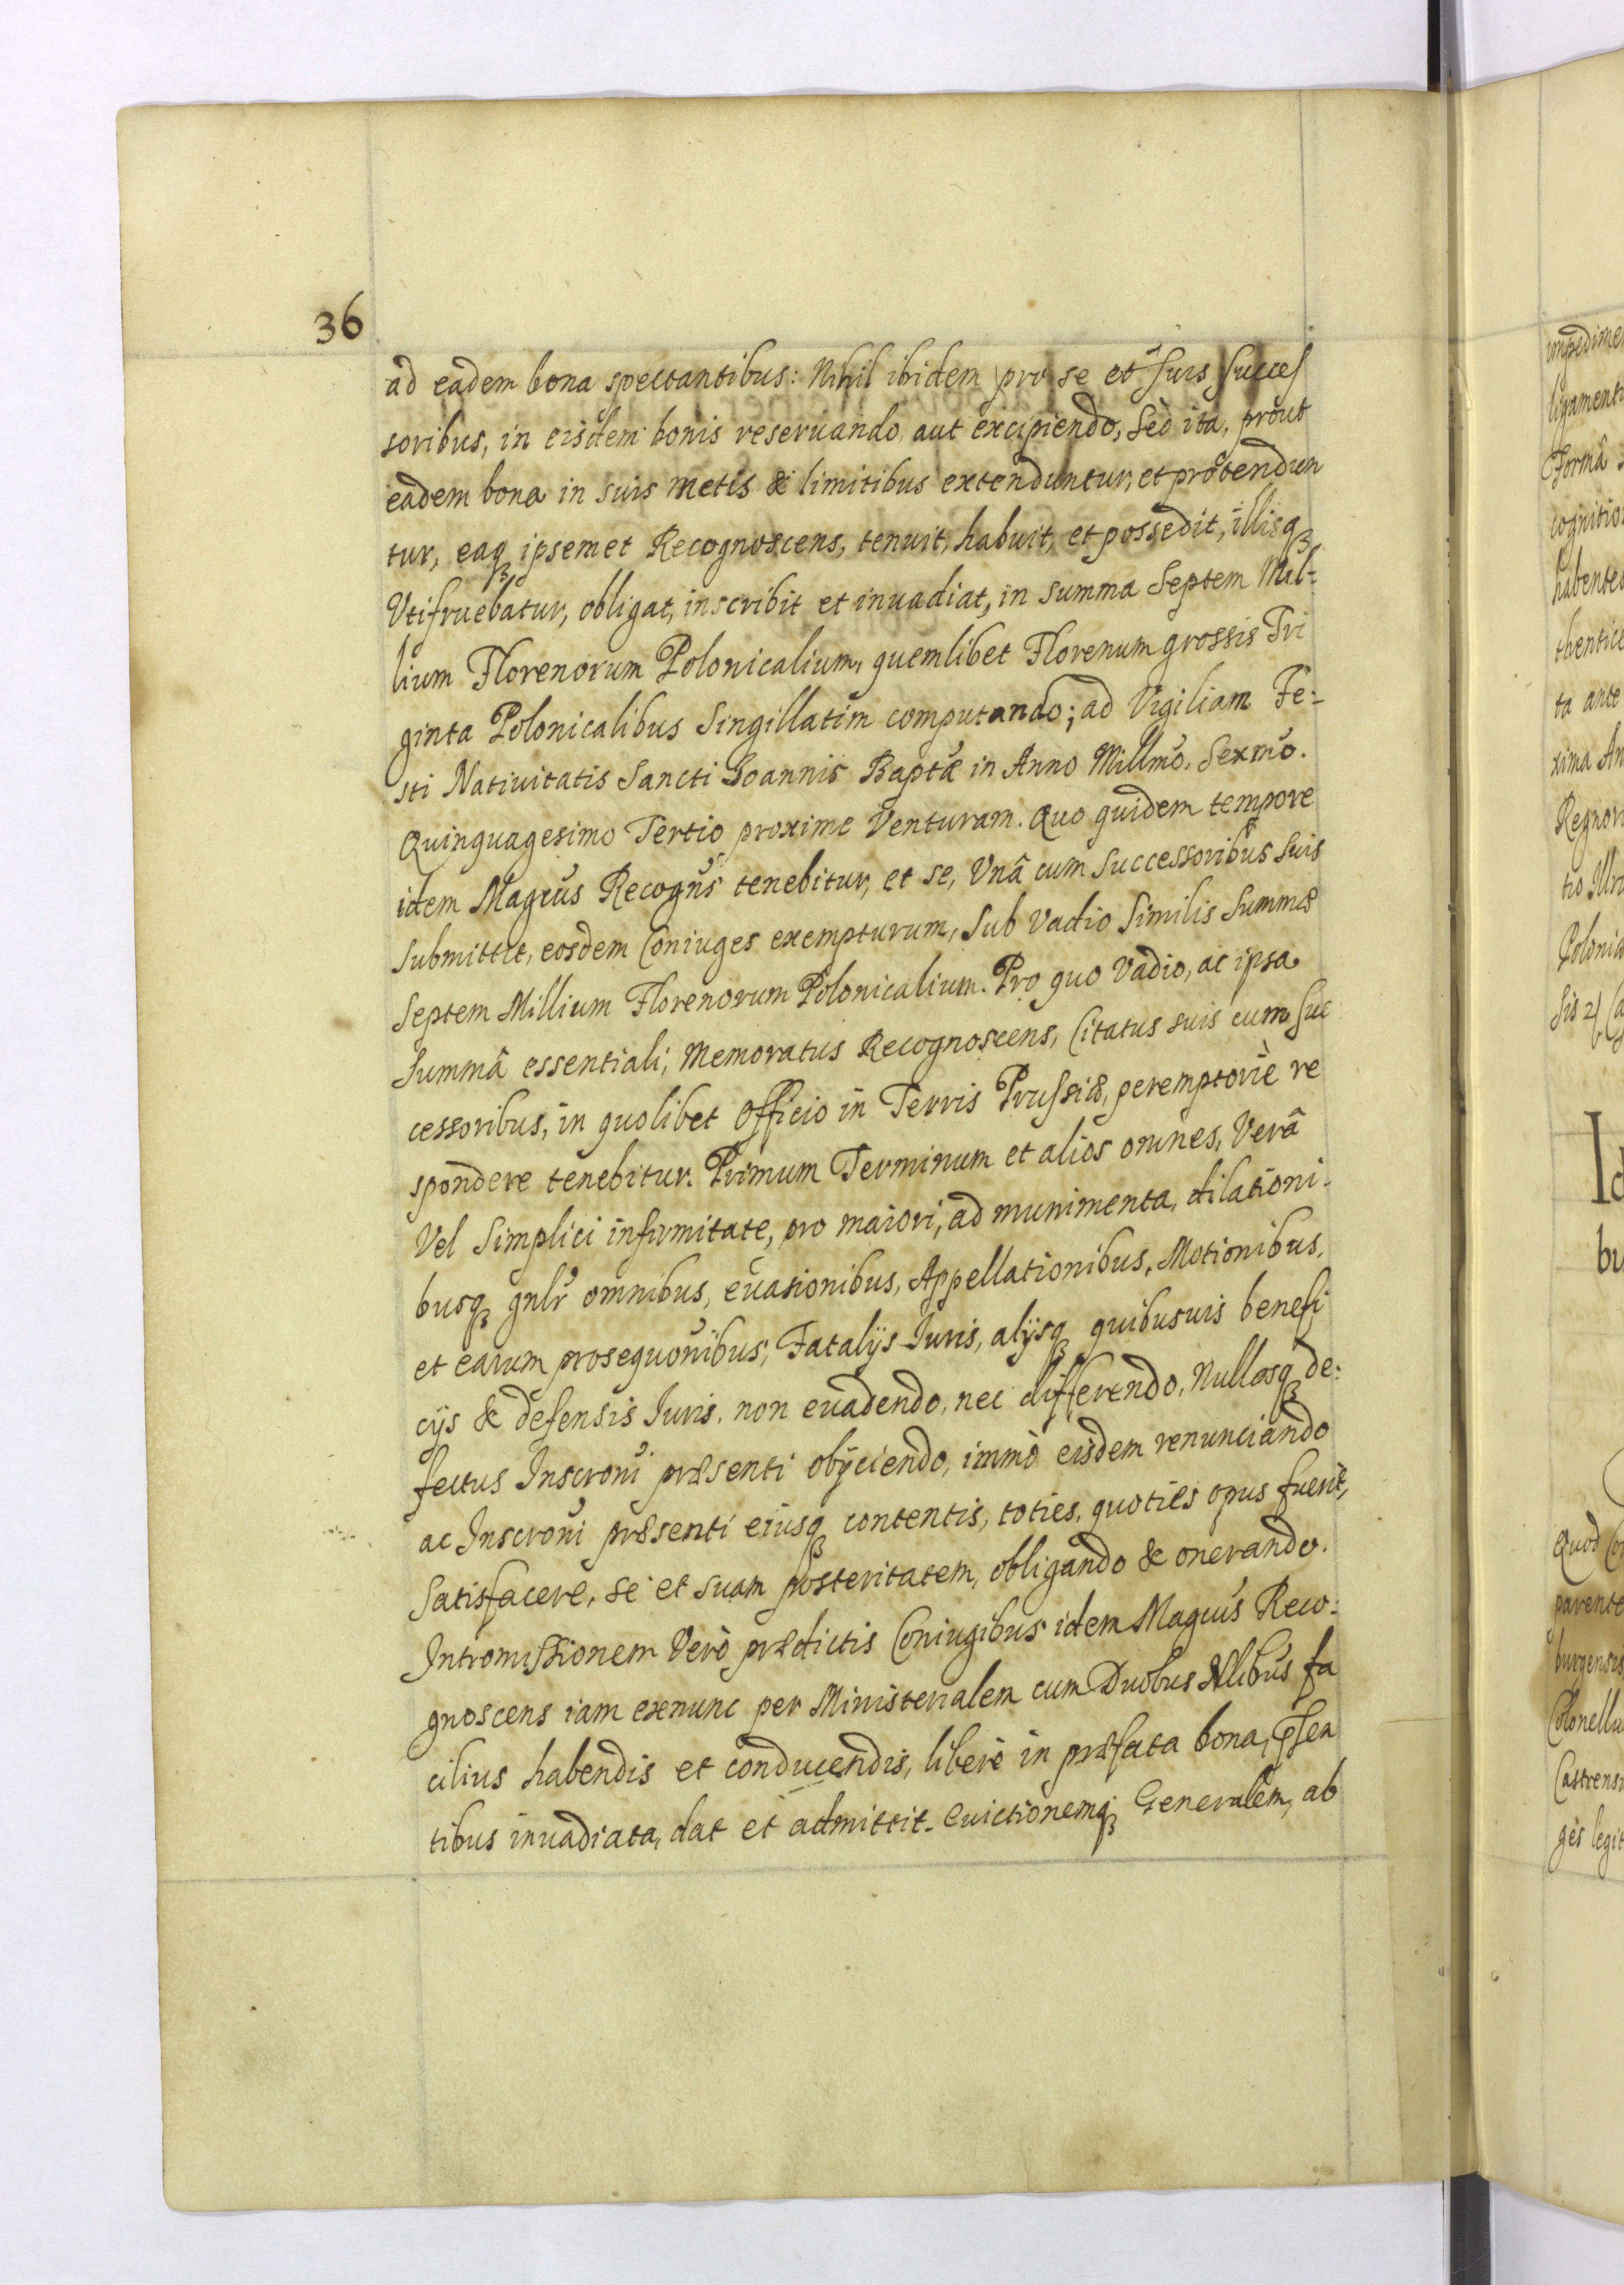 36
ad eadem bona spectantibus: Nihil ibidem pro se et suis succes
soribus, in eisdem bonis reseruando aut excipiendo, sed ita, prout
eadem bona in suis metis & limitibus extenduntur, et protendun
tur, eaq₃ ipsemet Recognoscens, tenuit, habuit, et possedit, illisq₃
Vtifruebatur, obligat, inscribit et inuadiat, in summa Septem Mil-
lium Florenorum Polonicalium, quemlibet Florenum grossis Tri
ginta Polonicalibus Singillatim computando; ad Vigiliam Fe-
sti Natiuitatis Sancti Ioannis Baptæ in Anno Millmo. Sexmo.
Quinquagesimo Tertio proxime Venturam. Quo quidem tempore
idem Magcus Recogns tenebitur, et se, Vnâ cum Successoribus suis
submittit, eosdem Coniuges exempturum, Sub vadio Similis Summæ
Septem Millium Florenorum Polonicalium. Pro quo Vadio, ac ipsa
Summâ essentiali, Memoratus Recognoscens, Citatus suis cum suc
cessoribus, in quolibet Officio in Terris Prussiæ, peremptoriè re
spondere tenebitur. Primum Terminum et alios omnes, Verâ
Vel Simplici infirmitate, pro maiori, ad munimenta, dilationi-
busq₃ gnlr omnibus, euasionibus, Appellationibus, Motionibus,
et earum prosequonibus, Fatalijs Iuris, alijsq₃ quibusuis benefi
cijs & defensis Iuris, non euadendo, nec differendo, Nullosq₃ de:
fectus Inscroni præsenti obijciendo, immò eisdem renunciando
ac Inscroni præsenti eiusq₃ contentis, toties, quoties opus fuerit,
Satisfacere, se et suam posteritatem, obligando & onerando.
Intromissionem Verò prædictis Coniugibus idem Magcus Reco-
gnoscens iam exnunc per Ministerialem cum Duobus Nlibus fa
cilius habendis et conducendis, liberè in præfata bona, Psen
tibus inuadiata, dat et admittit. Euictionemq₃ Generalem, ab
Colonellu